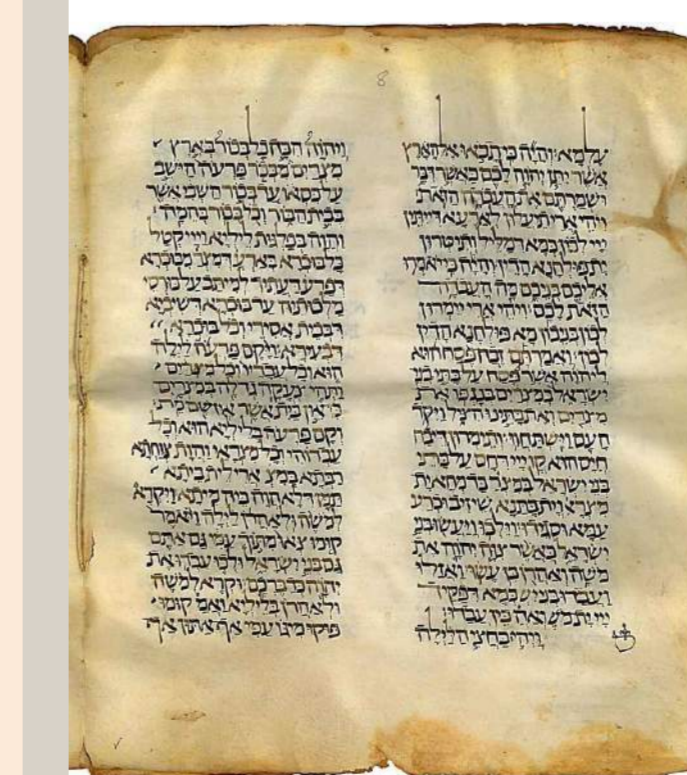 עלמא והיה כי תבאו אל הארץ
אשר יתן יהוה לכם כאשר דבר
ושמרתם את העבדה הזאת
ויהי ארי תיעלון לארעא דייתין
ייי לכון כמא דמליל ותיטרון
ית פולחנא הדין והיה כי יאמרו
אליכם בניכם מה העבדה
הזאת לכם ויהי ארי יימרון
לכון בניכון מא פולחנא הדין
לכון ואמרתם זבח פסח הוא
ליהוה אשר פסח על בתי בני
ישראל במצרים בנגפו את
מצרים ואת בתינו הציל ויקד
העם וישתחוו ותימרון דיבח
חיס הוא קדם ייי על בתי
בני ישראל במצר כד מחא ית
מצראי וית בתנא שיזיב וכרע
עמא וסגידו וילכו ויעשו בני
ישראל כאשר צוה יהוה את
משה ואהרן כן עשו ואזלו
ועבדו בני יש כמא דפקיד
ייי ית מש ואה כין עבדו
ויהי בחצי הלילה
ויהוה הכה כל בכור בארץ
מצרים מבכר פרעה הישב
על כסאו עד בכור השבי אשר
בבית הבור וכל בכור בהמה
והוה בפלגות ליליא וייי קטל
כל בוכרא בארעא דמצר מבוכרא
דפרעה דעתיד למיתב על כורסי
מלכותיה עד בוכרא דשיביא
דבבית אסירי וכל בוכרא
דבעירא ויקם פרעה לילה
הוא וכל עבדיו וכל מצרים
ותהי צעקה גדלה במצרים
כי אין בית אשר אין שם מת
וקם פרעה בליליא הוא וכל
עבדוהי וכל מצראי והות צוחתא
רבתא במצ ארי לית ביתא
תמן דלא הוה ביה מיתא ויקרא
למשה ולאהרן לילה ויאמר
קומו צאו מתוך עמי גם אתם
גם בני ישראל ולכו עבדו את
יהוה כדברכם וקרא למשה
ולאהרן בליליא ואמ קומו
פוקו מיגו עמי אף אתון אף
8